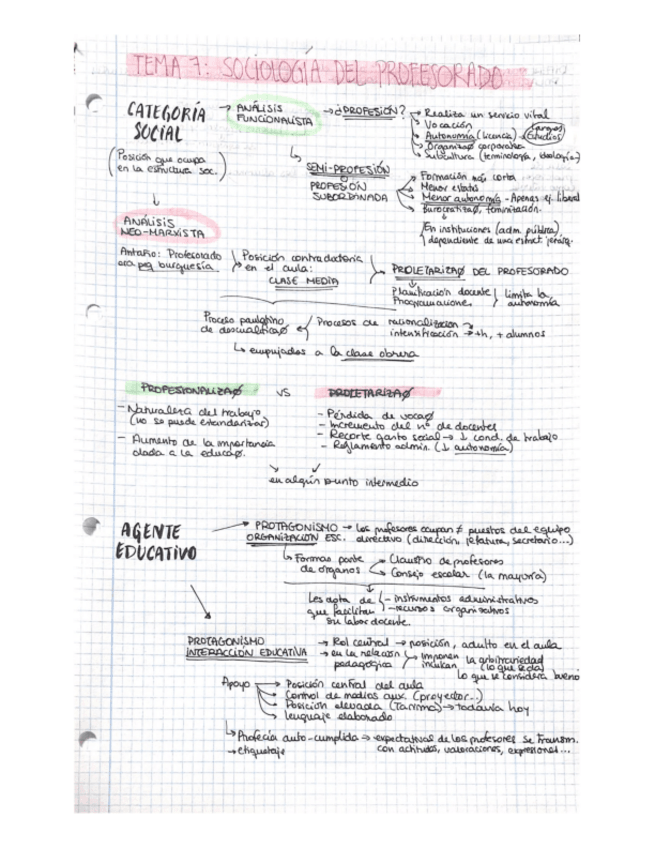 TEMA 7: SOCIOLOGÍA DEL PROFESORADO
CATEGORÍA SOCIAL
(Posición que ocupa en la estructura soc.)
→ ANÁLISIS FUNCIONALISTA → ¿PROFESIÓN?
→ Realiza un servicio vital
→ Vocación
→ Autonomía (licencia) → Estudios
→ Organizaø corporativa
→ Subcultura (terminología, ideología)
SEMI-PROFESIÓN
PROFESIÓN SUBORDINADA
→ Formación más corta
→ Menor estatus
→ Menor autonomía - Apenas ej. liberal
→ Burocratizaø, feminización.
↓
En instituciones (adm. pública)
dependiente de una estruct. jerárq.
ANÁLISIS NEO-MARXISTA
Antaño: Profesorado era peq burguesía
Posición contradictoria en el aula:
CLASE MEDIA
PROLETARIZAø DEL PROFESORADO
Planificación docente
Programaciones
limita la autonomía
Proceso paulatino de descualificaø
Procesos de racionalización
intensificación → +h, + alumnos
↳ empujados a la clase obrera
PROFESIONALIZAø VS PROLETARIZAø
- Naturaleza del trabajo
(no se puede estandarizar)
- Aumento de la importancia
dada a la educaø.
- Pérdida de vocaø
- Incremento del nº de docentes
- Recorte gasto social → ↓ cond. de trabajo
- Reglamento admin. (↓ autonomía)
en algún punto intermedio
AGENTE EDUCATIVO
PROTAGONISMO → los profesores ocupan ≠ puestos del equipo
ORGANIZACIÓN ESC. directivo (dirección, jefatura, secretario...)
↳ Forman parte de órganos
Claustro de profesores
Consejo escolar (la mayoría)
Les dota de
que facilitan
su labor docente.
- instrumentos administrativos
- recursos organizativos
PROTAGONISMO
INTERACCIÓN EDUCATIVA
→ Rol central → posición, adulto en el aula
→ en la relación pedagógica
imponen
inculcan
la arbitrariedad
(lo que se da)
lo que se considera bueno
Apoyo
→ Posición central del aula
→ Control de medios aux. (proyector...)
→ Posición elevada (Tarima) → todavía hoy
→ lenguaje elaborado
↳ Profecía auto-cumplida → expectativas de los profesores se transm.
con actitudes, valoraciones, expresiones...
→ etiquetaje